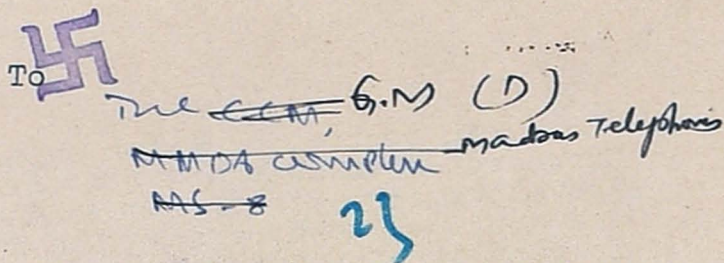 To
The CCM, G.M (D)
MMDA complex Madras Telephones
MS-8
23